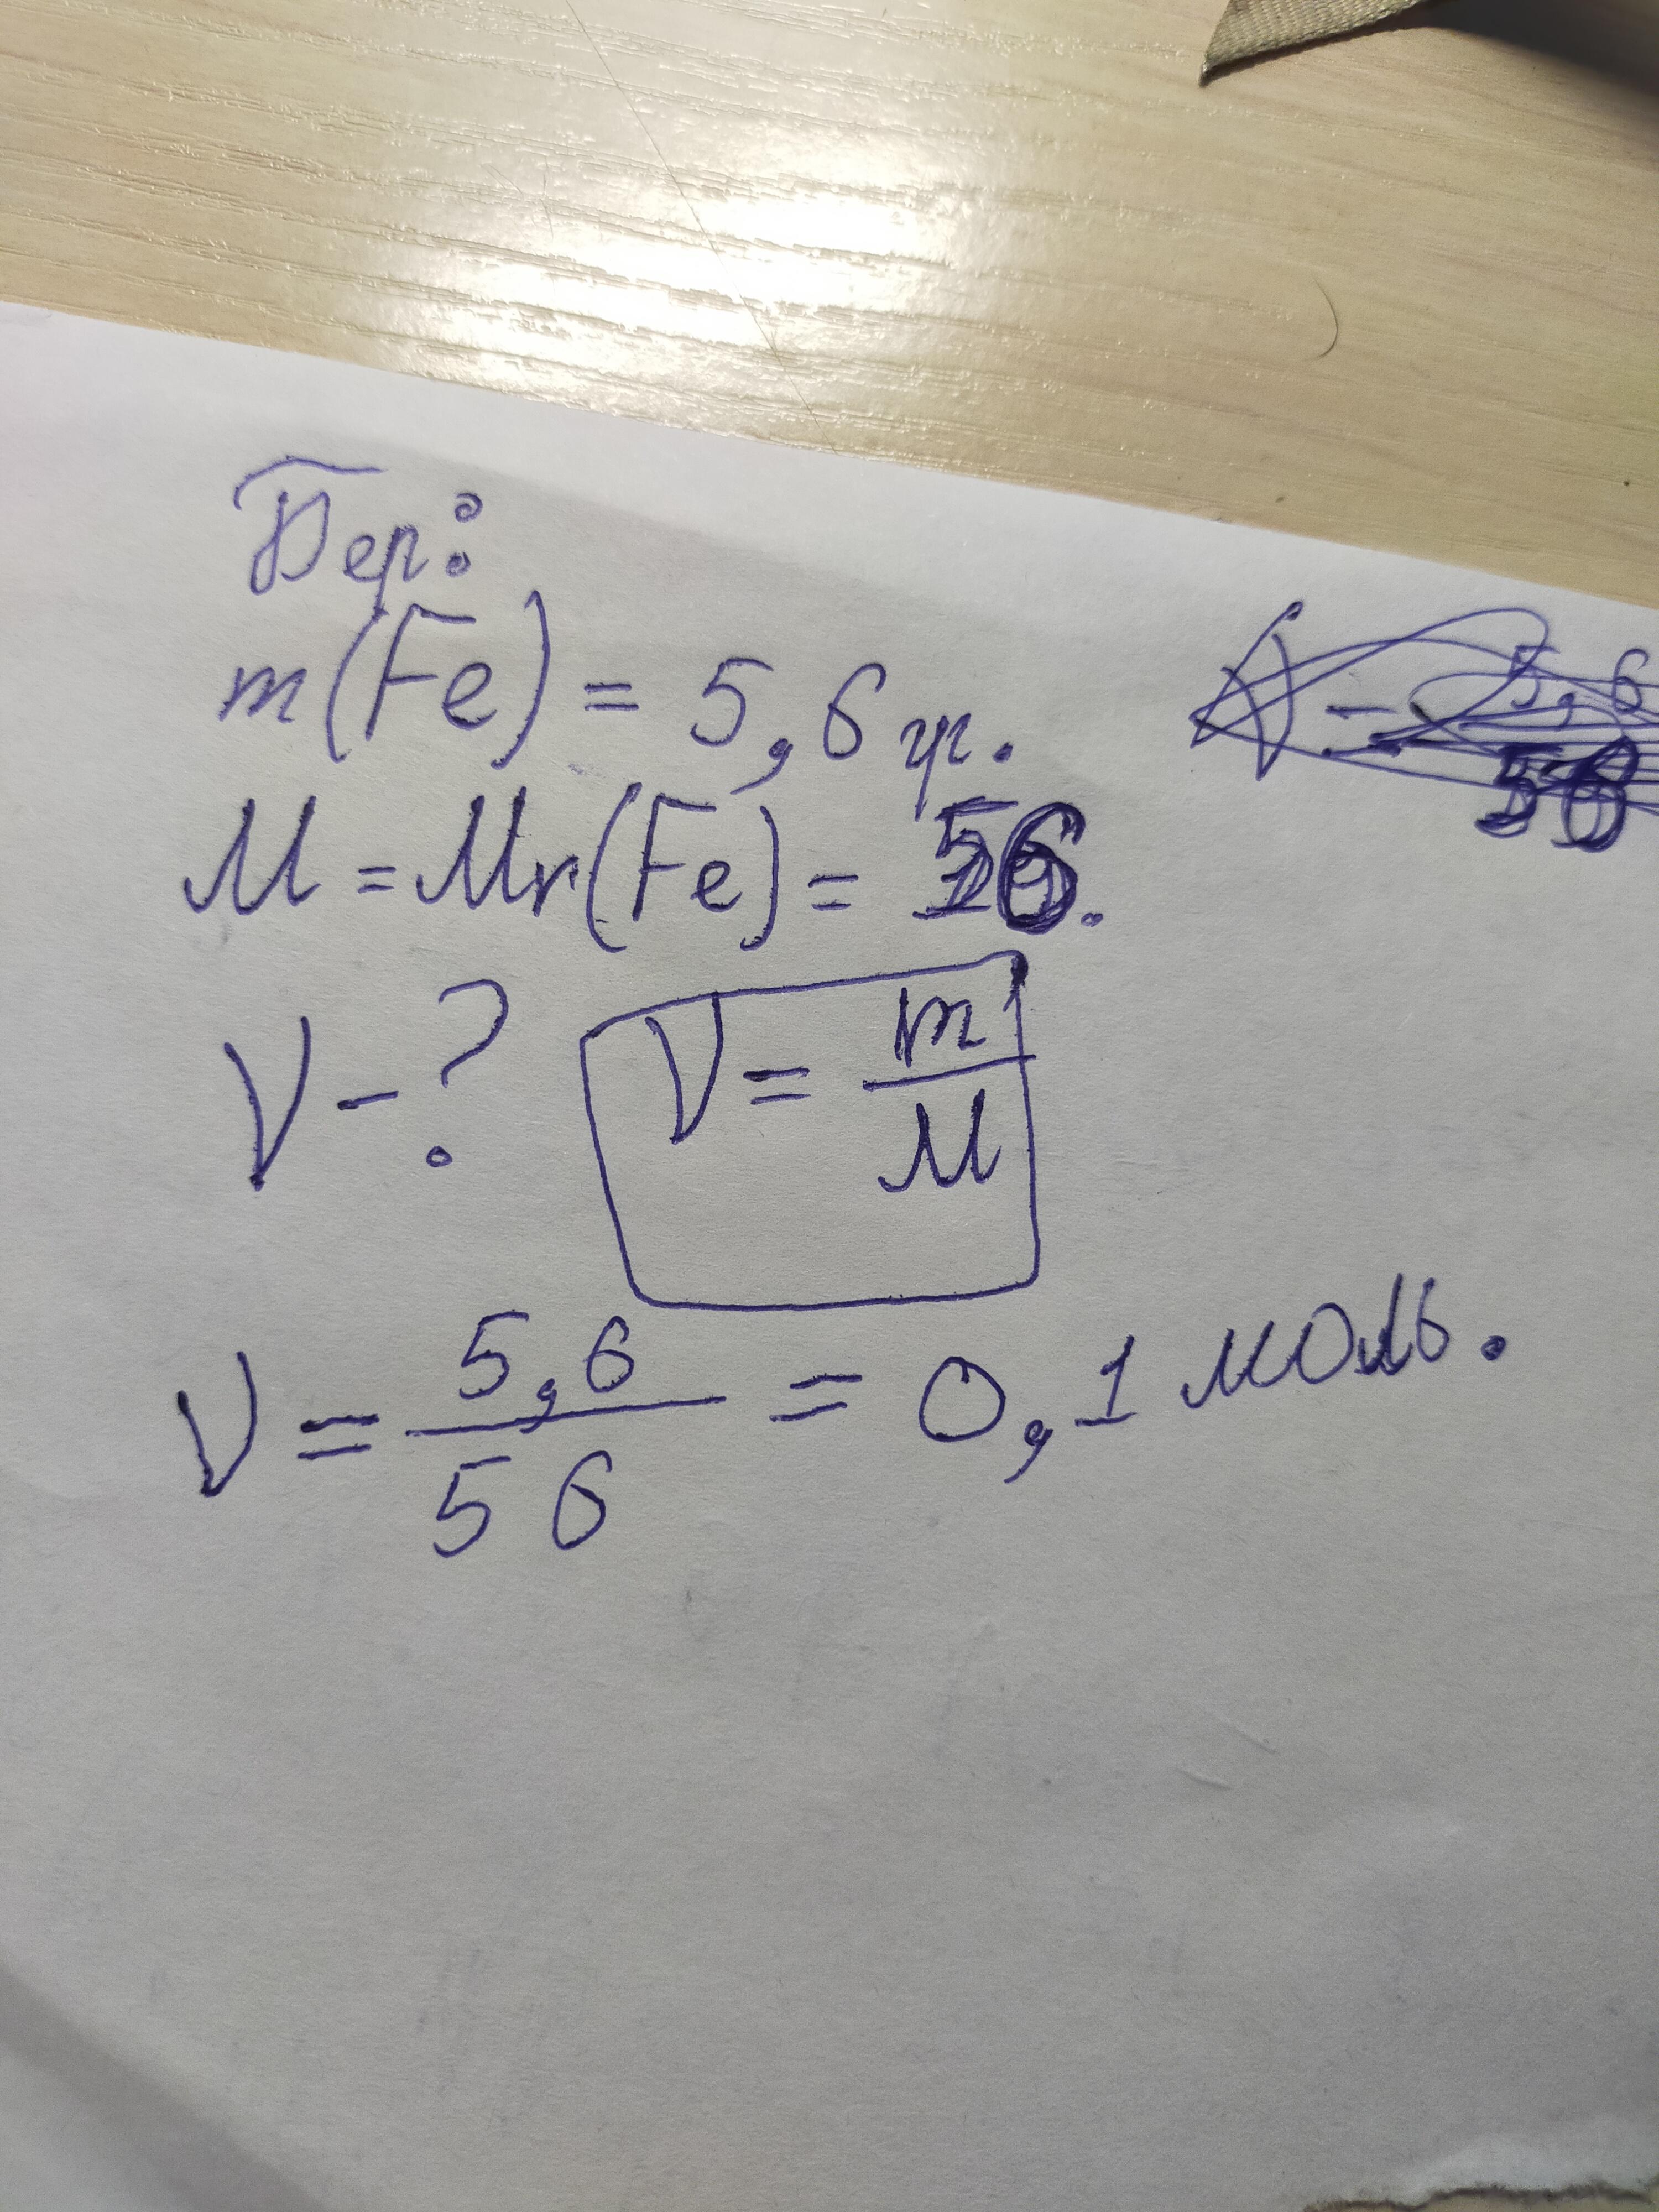 Бер:
m(Fe) = 5,6 гр.
M = Mr(Fe) = 56.
ν - ? ν = m/M
ν = 5,6/56 = 0,1 моль.